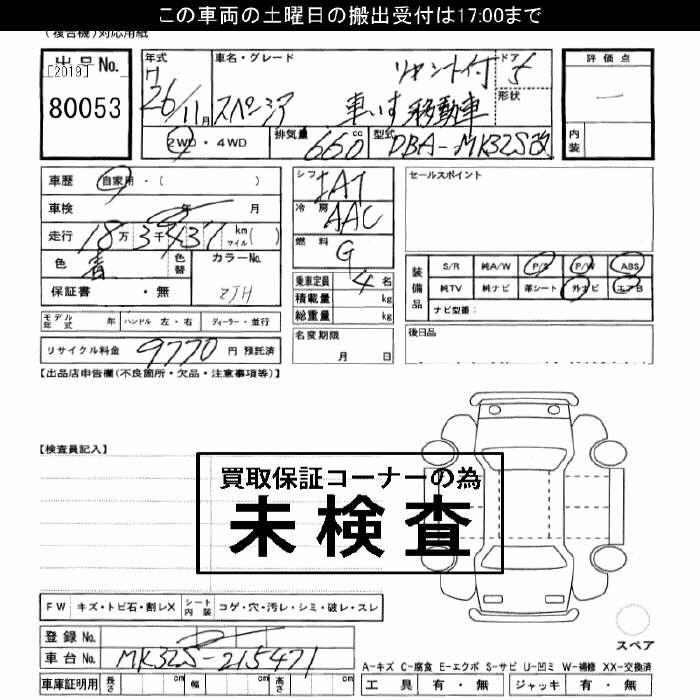 この車両の土曜日の搬出受付は17:00まで
(複合機)対応用紙
出品No.
[2019]
80053
年式 車名・グレード ドア
H 26/11月 スペーシア リヤシート付 5
車いす移動車
形状
2WD・4WD 排気量 660 cc 型式 DBA-MK32S改
評価点
一
内装
車歴 自家用・( )
車検 年 月
走行 18万3千437 km マイル ( )
色 青 色替 カラーNo. ZJH
保証書 ・無
モデル年式 年 ハンドル 左・右 ディーラー・並行
リサイクル料金 9770 円 預託済
シフト IAT
冷房 AAC
燃料 G
乗車定員 4 名
積載量 kg
総重量 kg
名変期限
月 日
セールスポイント
装備品 S/R 純A/W P/S P/W ABS
純TV 純ナビ 革シート 外ナビ エアB
ナビ型番:
後日品
【出品店申告欄(不良箇所・欠品・注意事項等)】
【検査員記入】
買取保証コーナーの為
未検査
FW キズ・トビ石・割レX シート内装 コゲ・穴・汚レ・シミ・破レ・スレ
登録No.
車台No. MK32S-215471
車庫証明用 長さ cm 幅 cm 高さ cm
スペア
A-キズ C-腐食 E-エクボ S-サビ U-凹ミ W-補修 XX-交換済
工具 有・無 ジャッキ 有・無